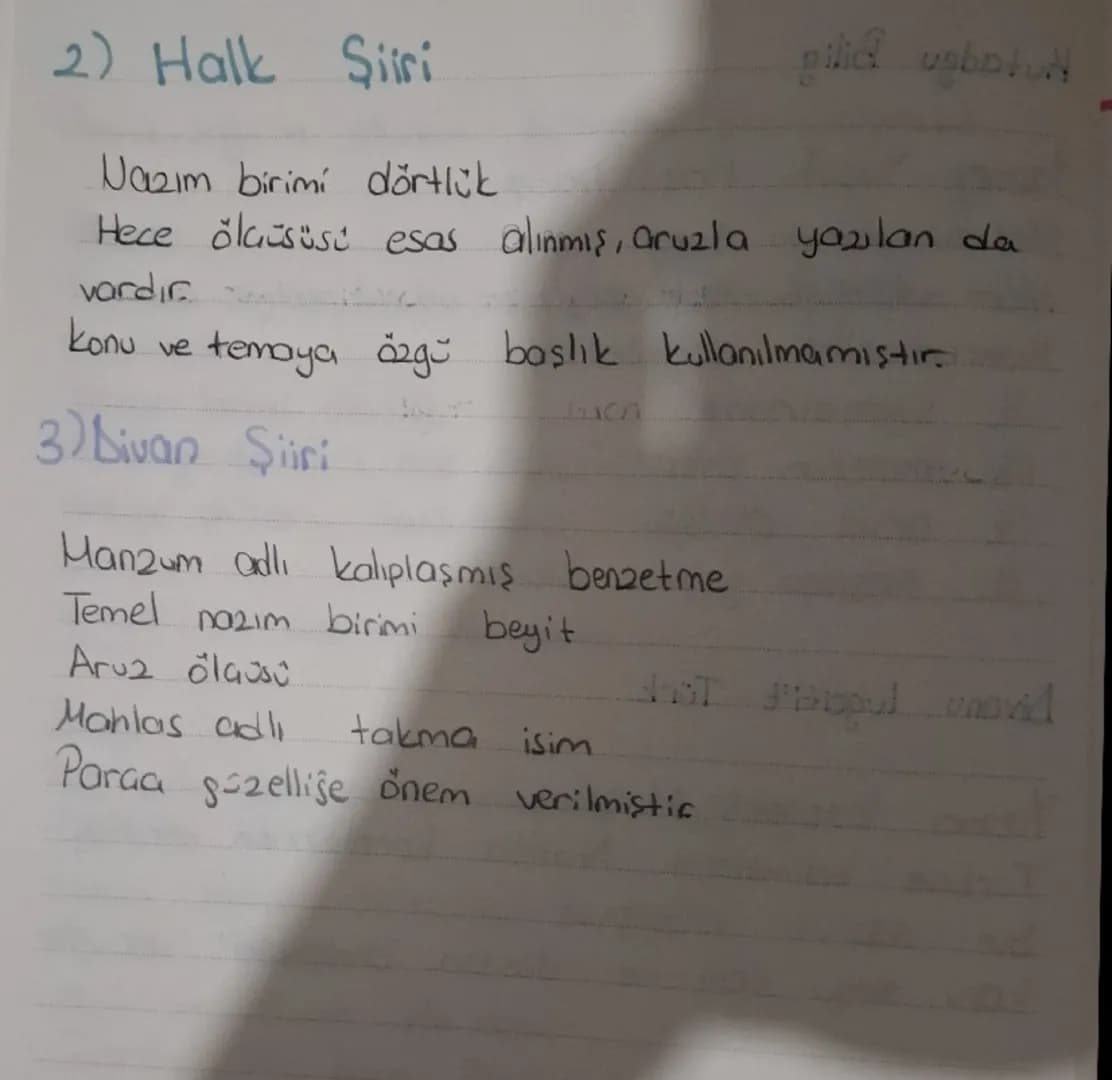 2) Halk Şiiri
Nazım birimi dörtlük
Hece ölçüsüsü esas alınmış, aruzla yazılan da
vardır.
Konu ve temaya özgü başlık kullanılmamıştır.
3) Divan Şiiri
Manzum adlı kalıplaşmış benzetme
Temel nazım birimi beyit
Aruz ölçüsü
Mahlas adlı takma isim
Parça güzelliğe önem verilmiştir